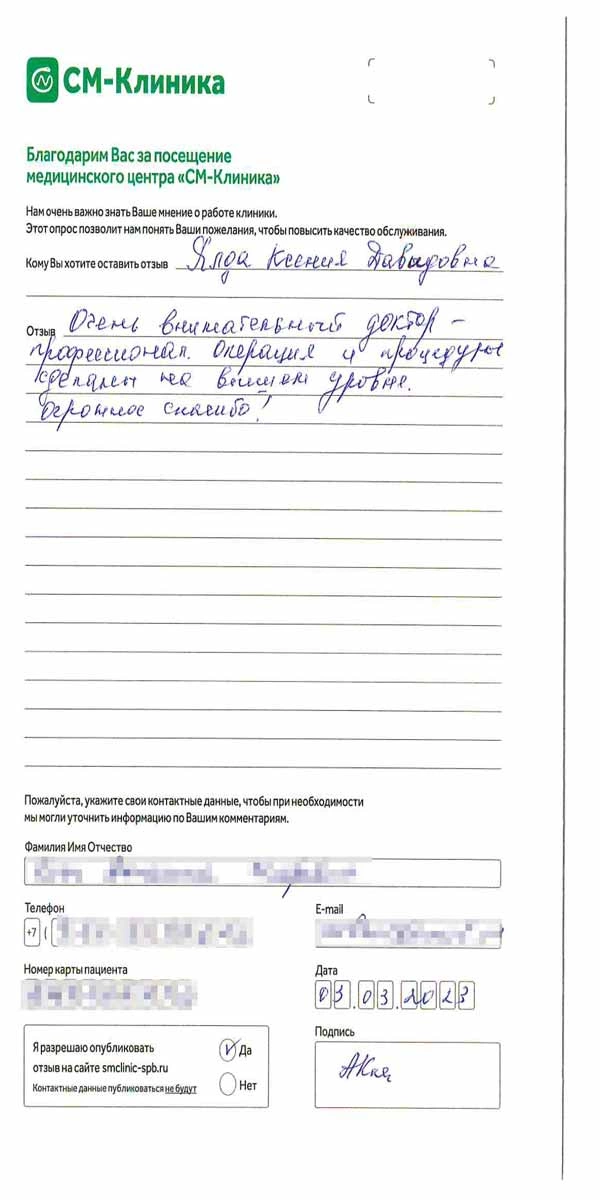 СМ-Клиника
Благодарим Вас за посещение
медицинского центра «СМ-Клиника»
Нам очень важно знать Ваше мнение о работе клиники.
Этот опрос позволит нам понять Ваши пожелания, чтобы повысить качество обслуживания.
Кому Вы хотите оставить отзыв Ялда Ксения Давыдовна
Отзыв Очень внимательный доктор –
профессионал. Операция и процедуры
сделаны на высшем уровне.
Огромное спасибо!
Пожалуйста, укажите свои контактные данные, чтобы при необходимости
мы могли уточнить информацию по Вашим комментариям.
Фамилия Имя Отчество
Телефон E-mail
+7 (
Номер карты пациента Дата
03.03.2023
Я разрешаю опубликовать Да Подпись
отзыв на сайте smclinic-spb.ru
Контактные данные публиковаться не будут Нет